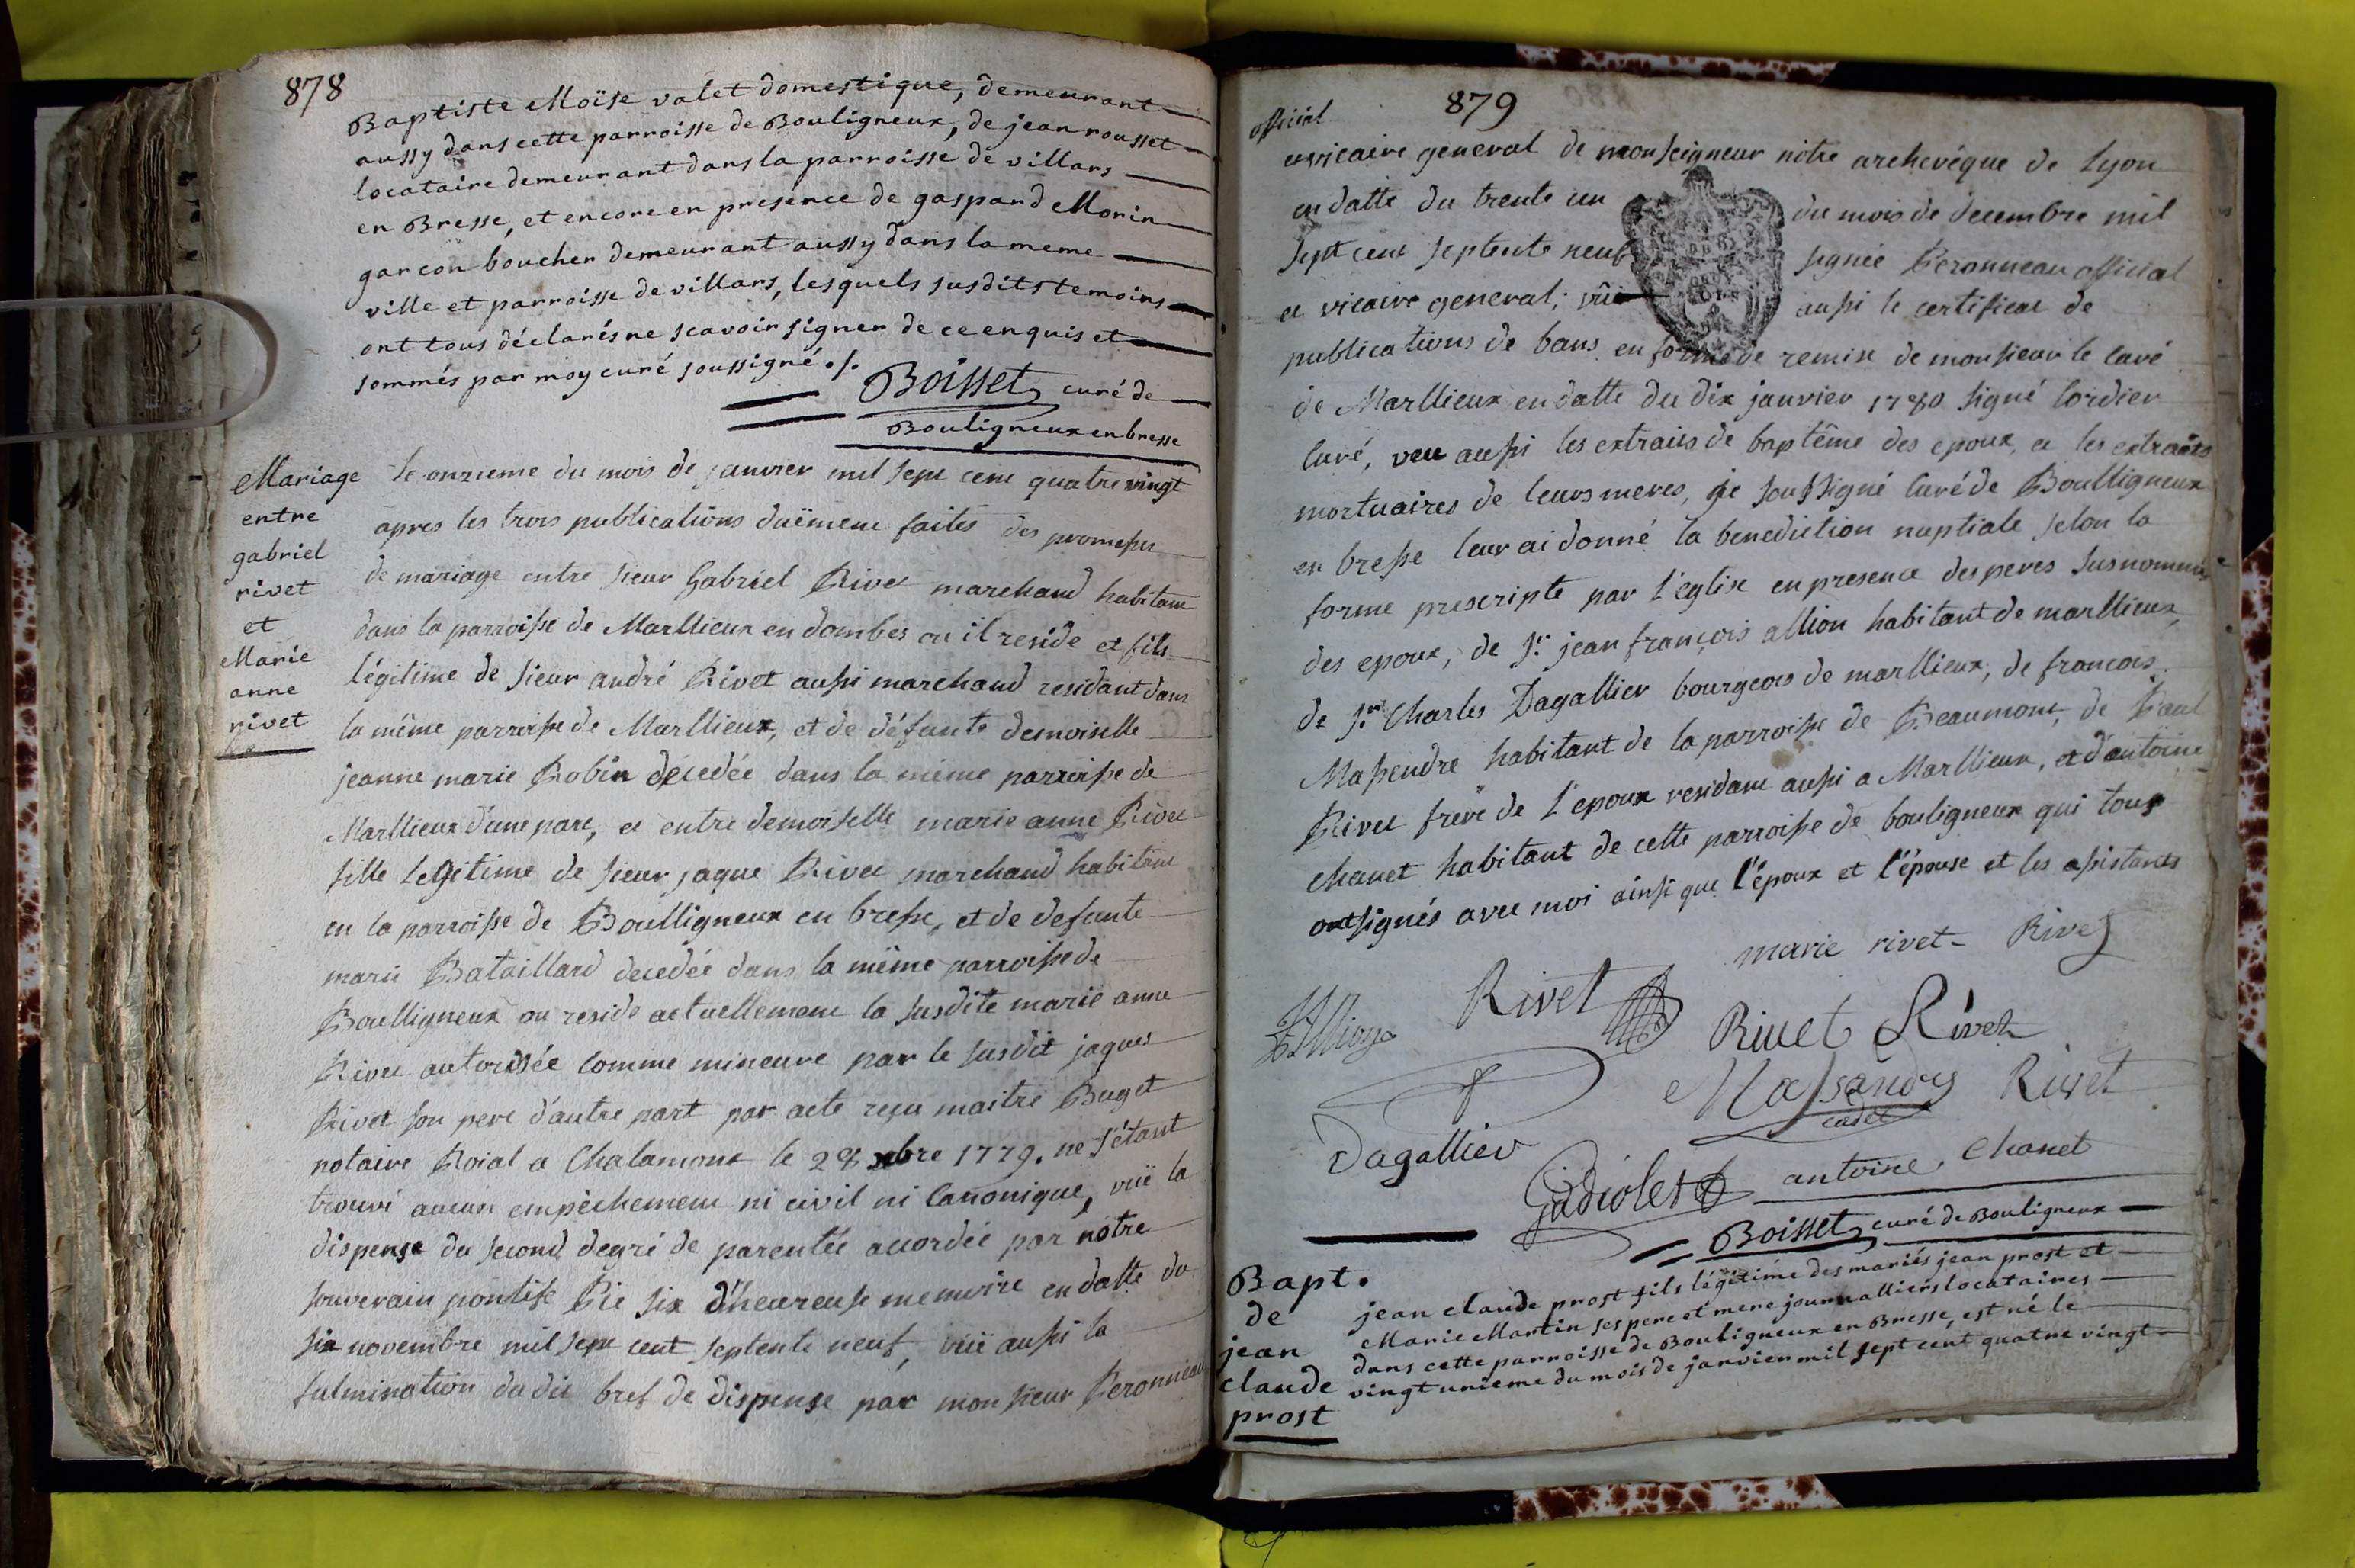 878
Baptiste Moïse valet domestique, demeurant
aussy dans cette parroisse de Bouligneux, de jean rousset
locataire demeurant dans la parroisse de villars
en Bresse, et encore en presence de gaspard Morin
garcon boucher demeurant aussy dans la meme
ville et parroisse de villars, lesquels susdits temoins
ont tous déclarés ne scavoir signer de ce enquis et
sommés par moy curé soussigné ./.
Boisset curé de
Bouligneux en bresse
Mariage
entre
gabriel
rivet
et
Marie
anne
rivet
le onzieme du mois de janvier mil sept cent quatre vingt
apres les trois publications duëment faites des promesses
de mariage entre sieur Gabriel Rivet marchand habitant
dans la parroisse de Marllieux en dombes ou il reside et fils
légitime de sieur andré Rivet aussi marchand residant dans
la même parroisse de Marllieux, et de défunte demoiselle
jeanne marie Robin décedée dans la même parroisse de
Marllieux d'une part, et entre demoiselle marie anne Rivet
fille legitime de sieur jaque Rivet marchand habitant
en la parroisse de Boulligneux en bresse, et de defunte
marie Bataillard decedée dans la même parroisse de
Boulligneux ou reside actuellement la susdite marie anne
Rivet autorisée comme mineure par le susdit jaques
Rivet son pere d'autre part par acte reçu maitre Buget
notaire Roial a Chalamont le 28 xbre 1779. ne s'étant
trouvé aucun empêchement ni civil ni canonique, vüe la
dispense du second degré de parentée accordée par notre
souverain pontife Pie six d'heureuse memoire en datte du
six novembre mil sept cent septente neuf, vüe aussi la
fulmination du dit bref de dispense par monsieur Peronneau
879
official
et vicaire general de monseigneur nôtre archevêque de Lyon
en datte du trente un du mois de decembre mil
sept cent septente neuf signée Peronneau official
et vicaire general; vû aussi le certificat de
publications de bans en forme de remise de monsieur le curé
de Marllieux en datte du dix janvier 1780 signé Cordier
curé, veu aussi les extraits de baptême des epoux, et les extraits
mortuaires de leurs meres, je soussigné curé de Boulligneux
en bresse leur ai donné la benediction nuptiale selon la
forme prescripte par l'eglise en presence des peres susnommés
des epoux, de Sr. jean françois allion habitant de marllieux,
de Sr. Charles Dagallier bourgeois de marllieux, de francois
Massendre habitant de la parroisse de Beaumont, de Paul
Rivet frere de l'epoux residant aussi a Marllieux, et d'antoine
chanet habitant de cette parroisse de bouligneux qui tous
ont signés avec moi ainsi que l'époux et l'épouse et les assistants
marie rivet Rivet
Allion Rivet
Rivet Rivet
Massandry Rivet
cadet
Dagallier
Gadiolet antoine Chanet
Boisset curé de Bouligneux
Bapt.
de
jean
claude
prost
jean claude prost fils légitime des mariés jean prost et
Marie Martin ses pere et mere journalliers locataires
dans cette parroisse de Bouligneux en Bresse, est né le
vingt unieme du mois de janvier mil sept cent quatre vingt